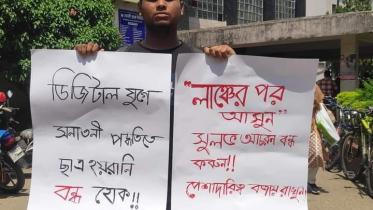 ডিজিটাল যুগে
সনাতনী পদ্ধতিতে
ছাত্র হয়রানি
বন্ধ হোক!!
"লাঞ্চের পর
আসুন"
সুলভ আচরন বন্ধ
করুন!!
পেশাদারিত্ব বজায় রাখুন!